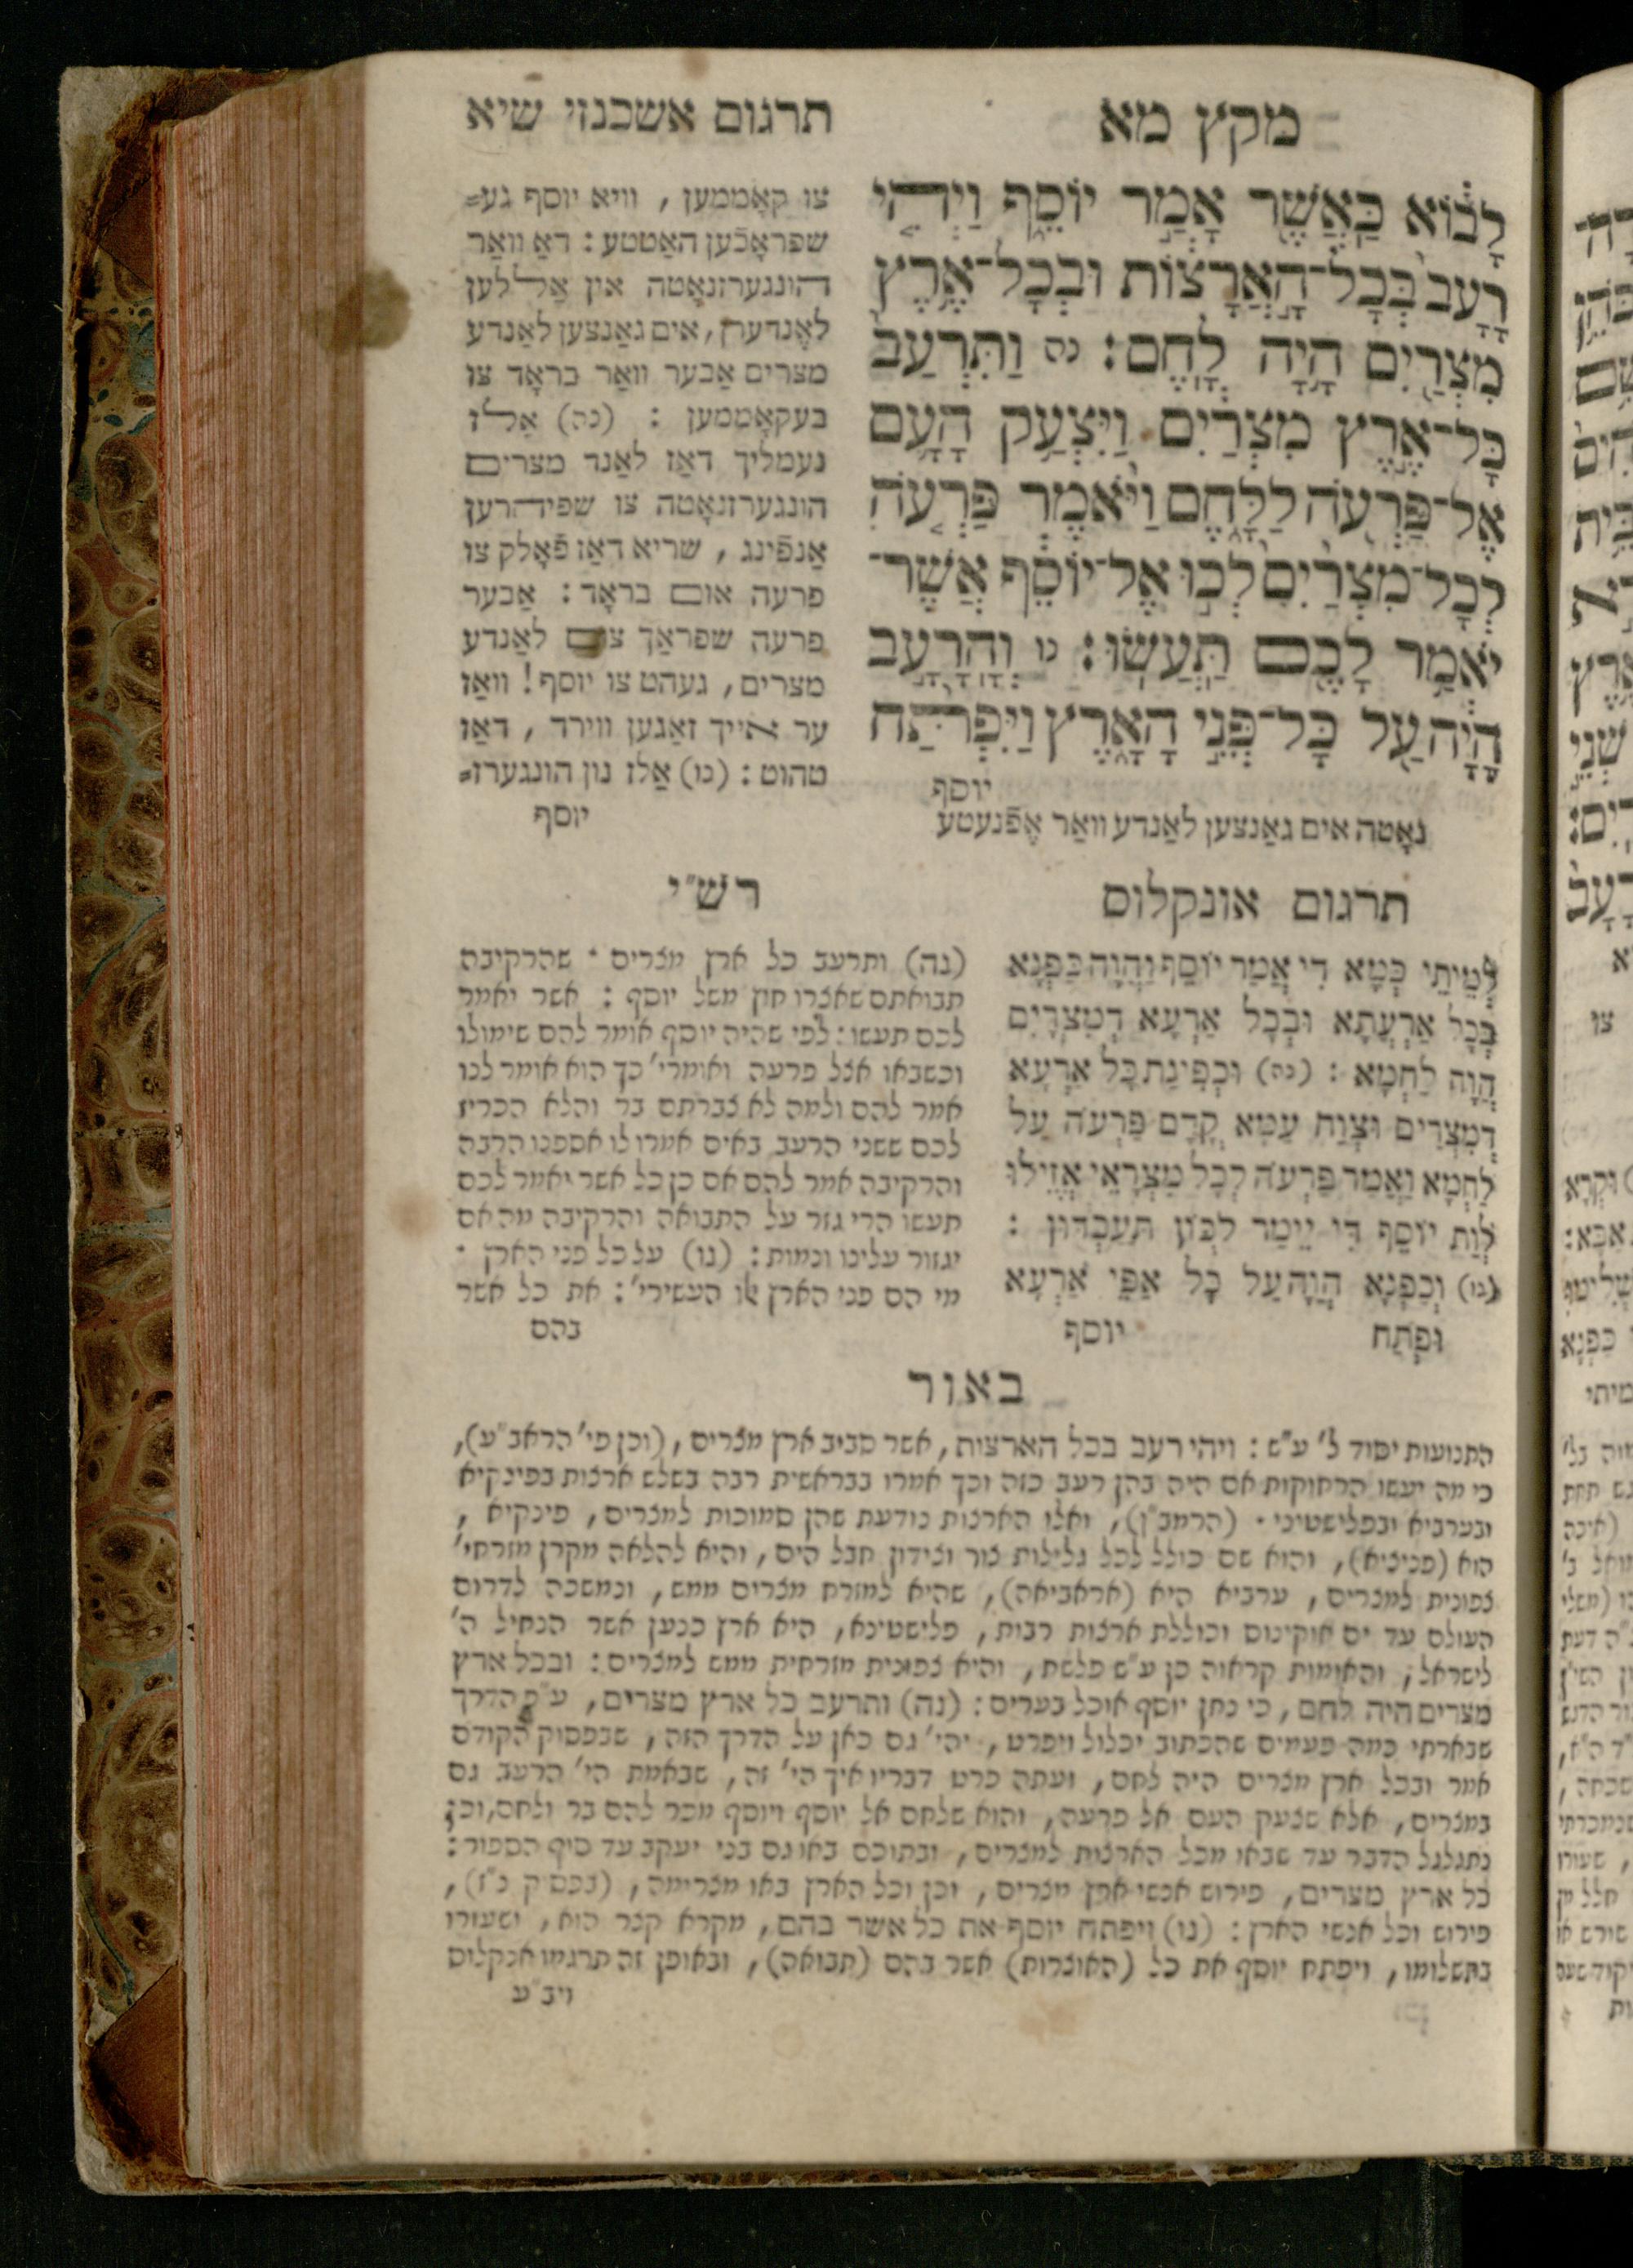 מקץ מא
תרגום אשכנזי שיא
לָב֔וֹא כַּֽאֲשֶׁ֖ר אָמַ֣ר יוֹסֵ֑ף וַיְהִ֤י
רָעָב֙ בְּכָל־הָ֣אֲרָצ֔וֹת וּבְכָל־אֶ֥רֶץ
מִצְרַ֖יִם הָ֥יָה לָֽחֶם׃ נה וַתִּרְעַב֙
כָּל־אֶ֣רֶץ מִצְרַ֔יִם וַיִּצְעַ֥ק הָעָ֛ם
אֶל־פַּרְעֹ֖ה לַלָּ֑חֶם וַיֹּ֨אמֶר פַּרְעֹ֤ה
לְכָל־מִצְרַ֙יִם֙ לְכ֣וּ אֶל־יוֹסֵ֔ף אֲשֶׁר־
יֹאמַ֥ר לָכֶ֖ם תַּעֲשֽׂוּ׃ נו וְהָרָעָ֣ב
הָיָ֔ה עַ֖ל כָּל־פְּנֵ֣י הָאָ֑רֶץ וַיִּפְתַּ֨ח
יוסף
צו קאָממען, וויא יוסף גע=
שפראָכֿען האַטטע: דאַ וואַר
הונגערזנאָטה אין אַללען
לאֶנדערן, אים גאַנצען לאַנדע
מצרים אַבער וואַר בראָד צו
בעקאָממען: (נה) אַלז
נעמליך דאַז לאַנד מצרים
הונגערזנאָטה צו שפיהרען
אַנפֿינג, שריא דאַז פֿאָלק צו
פרעה אום בראָד: אַבער
פרעה שפראַך צום לאַנדע
מצרים, געהט צו יוסף! וואַז
ער אייך זאַגען ווירד, דאַז
טהוט: (נו) אַלז נון הונגערז=
נאָטה אים גאַנצען לאַנדע וואַר אֶפֿנעטע
יוסף
תרגום אונקלוס
לְמֵיתֵי כְּמָא דִי אֲמַר יוֹסֵף וַהֲוָה כַפְנָא
בְּכָל אַרְעָתָא וּבְכָל אַרְעָא דְמִצְרַיִם
הֲוָה לַחְמָא: (נה) וּכְפֵינַת כָּל אַרְעָא
דְמִצְרַיִם וּצְוַח עַמָא קֳדָם פַּרְעֹה עַל
לַחְמָא וַאֲמַר פַּרְעֹה לְכָל מִצְרָאֵי אֱזִילוּ
לְוַת יוֹסֵף דִי יֵימַר לְכוֹן תַּעְבְּדוּן:
(נו) וְכַפְנָא הֲוָה עַל כָּל אַפֵּי אַרְעָא
וּפְתַח
יוסף
רש״י
(נה) ותרעב כל ארץ מצרים · שהרקיבה
תבואתם שאצרו חוץ משל יוסף: אשר יאמר
לכם תעשו: לפי שהיה יוסף אומר להם שימולו
וכשבאו אצל פרעה ואומרי׳ כך הוא אומר לנו
אמר להם ולמה לא צברתם בר והלא הכריז
לכם ששני הרעב באים אמרו לו אספנו הרבה
והרקיבה אמר להם אם כן כל אשר יאמר לכם
תעשו הרי גזר על התבואה והרקיבה מה אם
יגזור עלינו ונמות: (נו) על כל פני הארץ ·
מי הם פני הארץ אלו העשירי׳: את כל אשר
בהם
באור
התנועות יסוד ל׳ ע״ש: ויהי רעב בכל הארצות, אשר סביב ארץ מצרים, (וכן פי׳ הראב״ע),
כי מה יעשו הרחוקות אם היה בהן רעב כזה וכך אמרו בבראשית רבה בשלש ארצות בפינקיא
ובערביא ובפלישטיני · (הרמב״ן), ואלו הארצות נודעת שהן סמוכות למצרים, פינקיא,
הוא (פניציא), והוא שם כולל לכל גלילות צור וצידון חבל הים, והיא להלאה מקרן מזרחי׳
צפונית למצרים, ערביא היא (אראביאה), שהיא למזרח מצרים ממש, ונמשכה לדרום
העולם עד ים אוקינוס וכוללת ארצות רבות, פלישטינא, היא ארץ כנען אשר הנחיל ה׳
לישראל, והאומות קראוה כן ע״ש פלשת, והיא צפונית מזרחית ממש למצרים: ובכל ארץ
מצרים היה לחם, כי נתן יוסף אוכל בערים: (נה) ותרעב כל ארץ מצרים, ע״פ הדרך
שבארתי כמה פעמים שהכתוב יכלול ויפרט, יהי׳ גם כאן על הדרך הזה, שבפסוק הקודם
אמר ובכל ארץ מצרים היה לחם, ועתה פרט דבריו איך הי׳ זה, שבאמת הי׳ הרעב גם
במצרים, אלא שצעק העם אל פרעה, והוא שלחם אל יוסף ויוסף מכר להם בר ולחם, וכן
נתגלגל הדבר עד שבאו מכל הארצות למצרים, ובתוכם באו גם בני יעקב עד סוף הספור:
כל ארץ מצרים, פירוש אנשי ארץ מצרים, וכן וכל הארץ באו מצרימה, (בפסוק נ״ז),
פירוש וכל אנשי הארץ: (נו) ויפתח יוסף את כל אשר בהם, מקרא קצר הוא, ושעורו
בתשלומו, ויפתח יוסף את כל (האוצרות) אשר בהם (תבואה), ובאופן זה תרגמו אנקלוס
ויב״ע